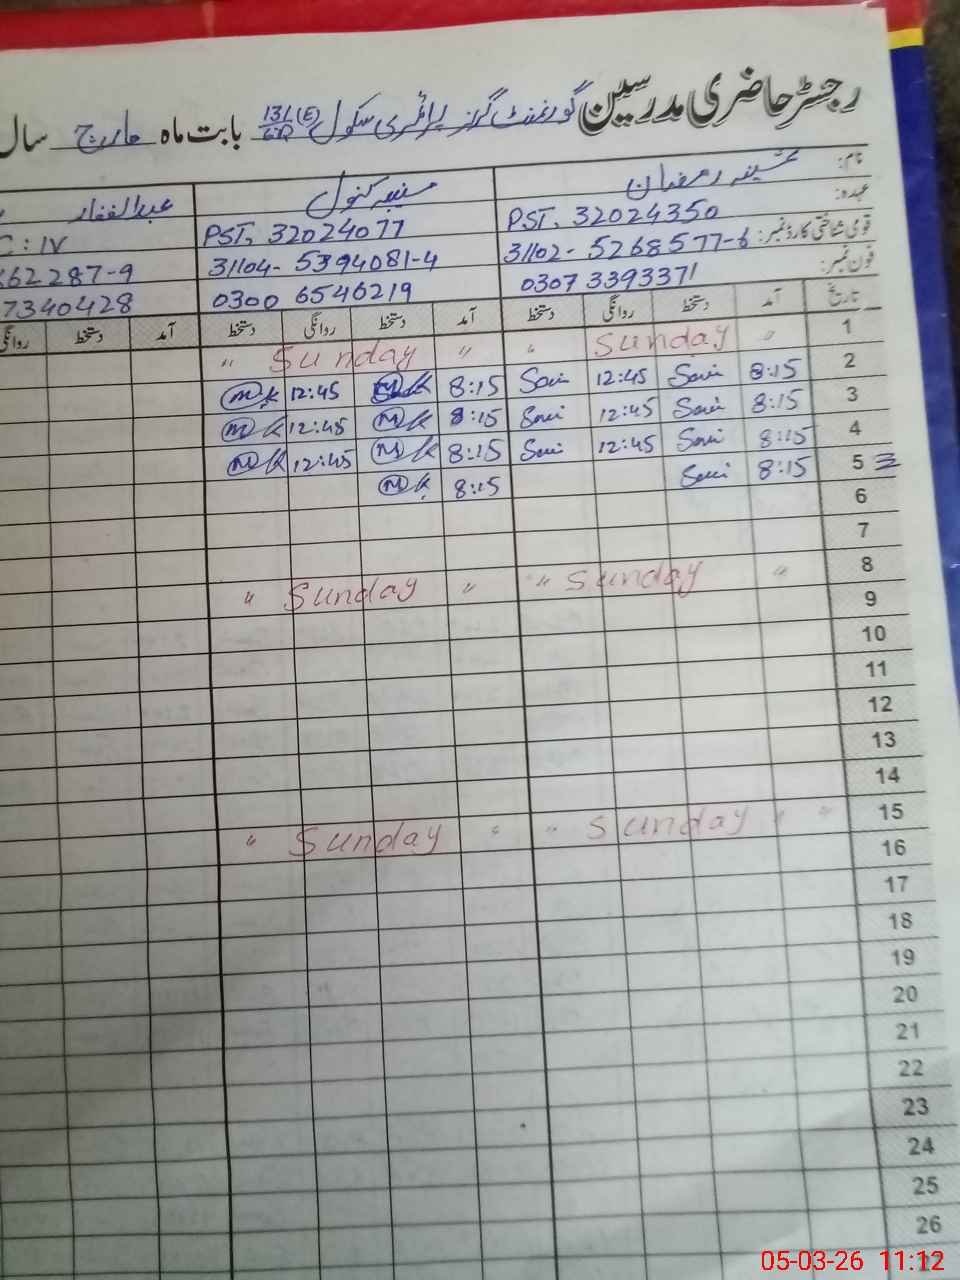 رجسٹر حاضری مدرسین گورنمنٹ گرلز پرائمری سکول 131(E) بابت ماہ مارچ سال
نام: رمضان کنول عبدالغفار
عہدہ: PST, 32024350 PST, 32024077 C: IV
قومی شناختی کارڈ نمبر: 31102-5268577-6 31104-5394081-4 662287-9
فون نمبر: 0307 3393371 0300 6546219 7340428
تاریخ آمد دستخط روانگی دستخط آمد دستخط روانگی دستخط آمد دستخط روانگی
1 " Sunday " " Sunday "
2 8:15 12:45 8:15 MK 12:45 MK
3 8:15 12:45 8:15 MK 12:45 MK
4 8:15 12:45 8:15 MK 12:45 MK
5 8:15 8:15 MK
6
7
8 " Sunday " " Sunday "
9
10
11
12
13
14
15 " " Sunday " " Sunday "
16
17
18
19
20
21
22
23
24
25
26
27
05-03-26 11:12